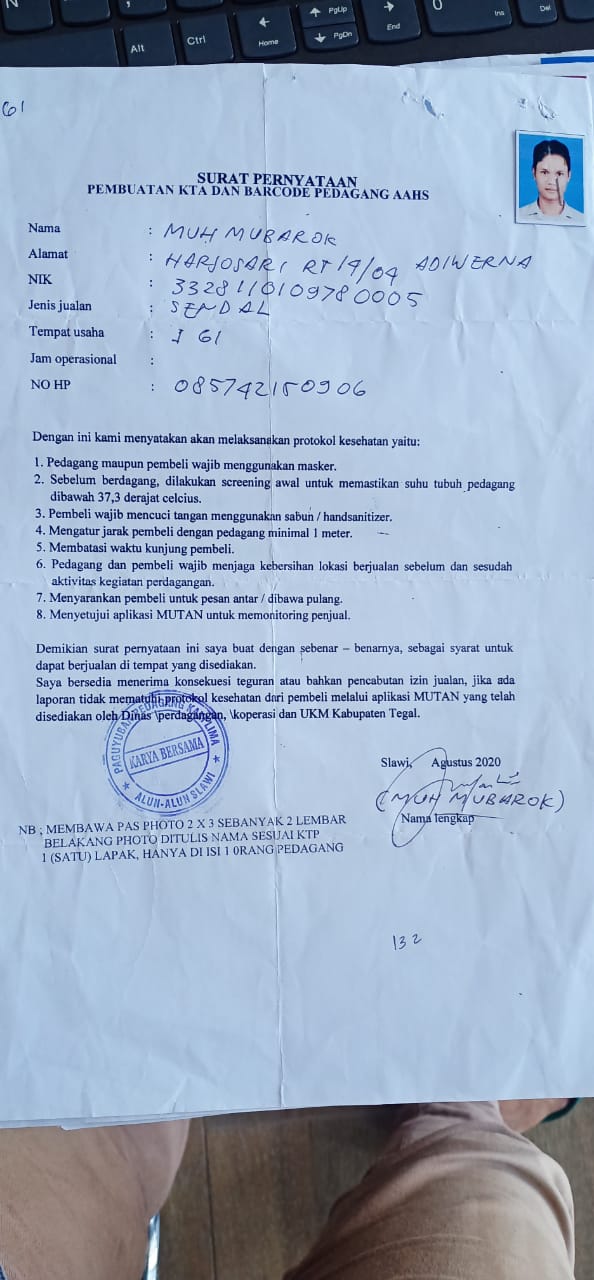 N
;
PgUp
0
Ins
Del
Alt
Ctrl
Home
PgDn
End
61
SURAT PERNYATAAN
PEMBUATAN KTA DAN BARCODE PEDAGANG AAHS
Nama : MUH MUBAROK
Alamat : HARJOSARI RT 19/04 ADIWERNA
NIK : 3328110109780005
Jenis jualan : SENDAL
Tempat usaha : I 61
Jam operasional :
NO HP : 085742150906
Dengan ini kami menyatakan akan melaksanakan protokol kesehatan yaitu:
1. Pedagang maupun pembeli wajib menggunakan masker.
2. Sebelum berdagang, dilakukan screening awal untuk memastikan suhu tubuh pedagang
dibawah 37,3 derajat celcius.
3. Pembeli wajib mencuci tangan menggunakan sabun / handsanitizer.
4. Mengatur jarak pembeli dengan pedagang minimal 1 meter.
5. Membatasi waktu kunjung pembeli.
6. Pedagang dan pembeli wajib menjaga kebersihan lokasi berjualan sebelum dan sesudah
aktivitas kegiatan perdagangan.
7. Menyarankan pembeli untuk pesan antar / dibawa pulang.
8. Menyetujui aplikasi MUTAN untuk memonitoring penjual.
Demikian surat pernyataan ini saya buat dengan sebenar – benarnya, sebagai syarat untuk
dapat berjualan di tempat yang disediakan.
Saya bersedia menerima konsekuesi teguran atau bahkan pencabutan izin jualan, jika ada
laporan tidak mematuhi protokol kesehatan dari pembeli melalui aplikasi MUTAN yang telah
disediakan oleh Dinas \perdagangan, \koperasi dan UKM Kabupaten Tegal.
PAGUYUBAN PEDAGANG KAKI LIMA
KARYA BERSAMA
ALUN-ALUN SLAWI
Slawi, Agustus 2020
(MUH MUBAROK)
Nama lengkap
NB ; MEMBAWA PAS PHOTO 2 X 3 SEBANYAK 2 LEMBAR
BELAKANG PHOTO DITULIS NAMA SESUAI KTP
1 (SATU) LAPAK, HANYA DI ISI 1 0RANG PEDAGANG
132